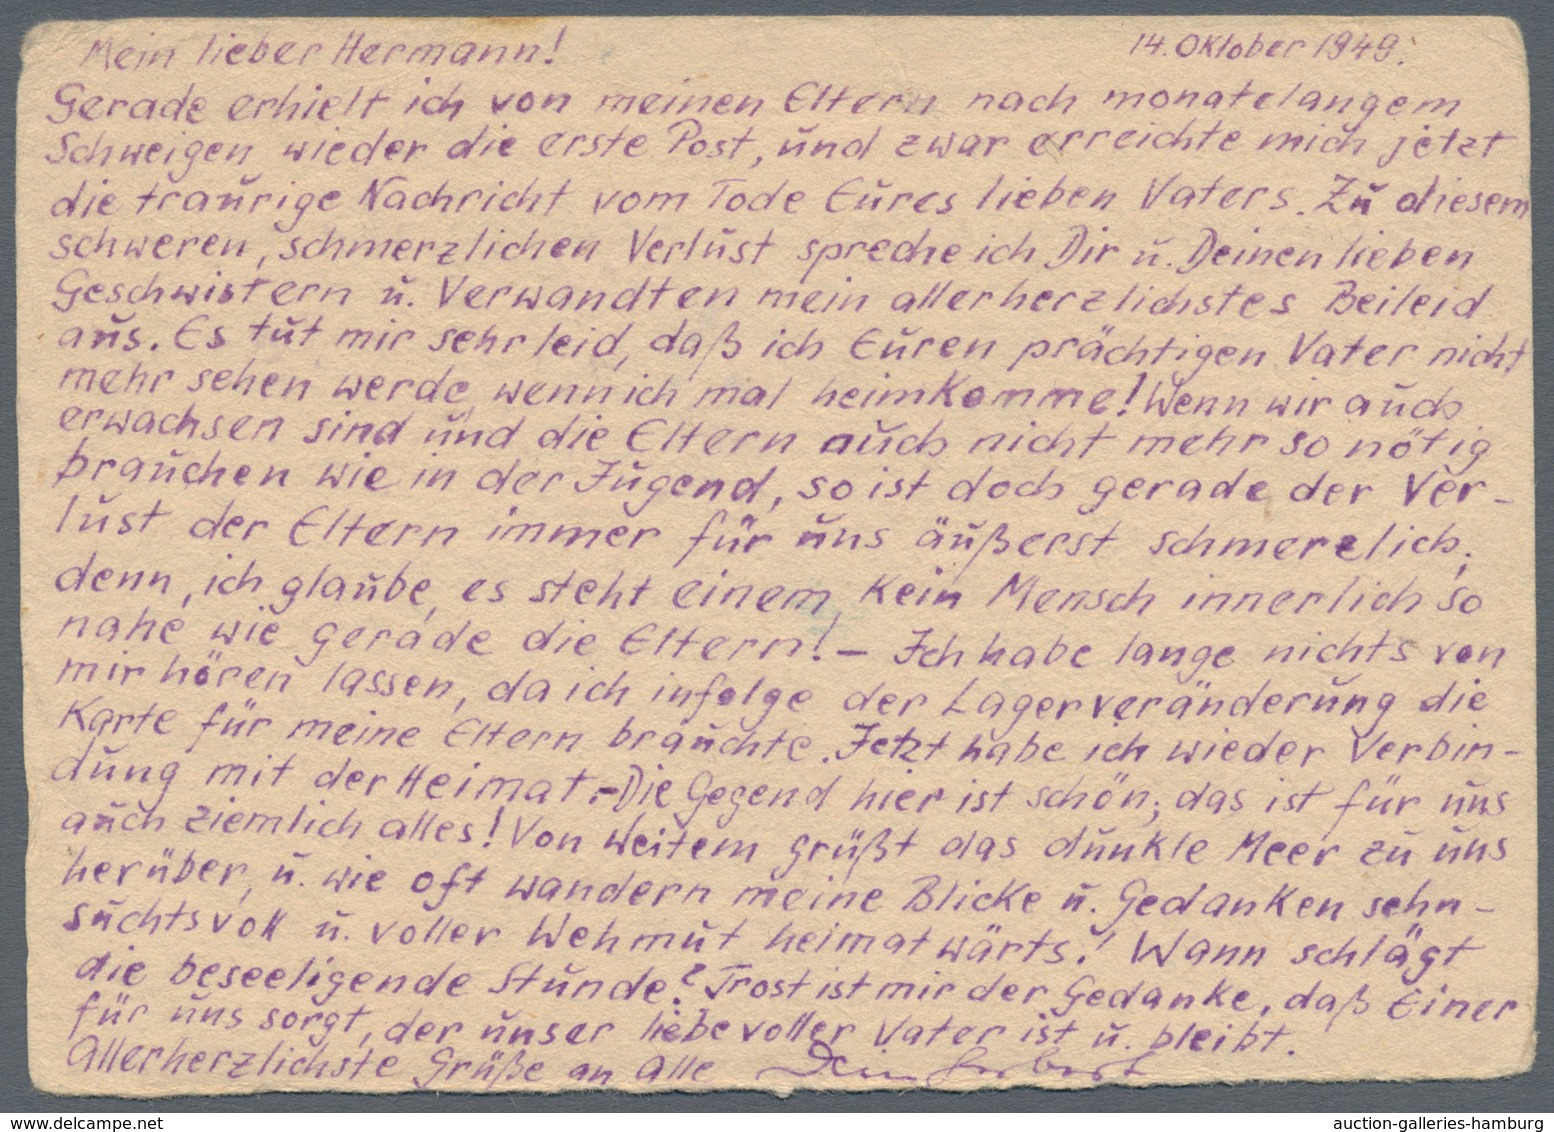 Mein lieber Hermann! 14. Oktober 1949.
Gerade erhielt ich von meinen Eltern nach monatelangem
Schweigen wieder die erste Post, und zwar erreichte mich jetzt
die traurige Nachricht vom Tode Eures lieben Vaters. Zu diesem
schweren, schmerzlichen Verlust spreche ich Dir u. Deinen lieben
Geschwistern u. Verwandten mein allerherzlichstes Beileid
aus. Es tut mir sehr leid, daß ich Euren prächtigen Vater nicht
mehr sehen werde, wenn ich mal heimkomme! Wenn wir auch
erwachsen sind und die Eltern auch nicht mehr so nötig
brauchen wie in der Jugend, so ist doch gerade der Ver-
lust der Eltern immer für uns äußerst schmerzlich;
denn, ich glaube, es steht einem kein Mensch innerlich so
nahe wie gerade die Eltern! – Ich habe lange nichts von
mir hören lassen, da ich infolge der Lagerveränderung die
Karte für meine Eltern brauchte. Jetzt habe ich wieder Verbin-
dung mit der Heimat. – Die Gegend hier ist schön; das ist für uns
auch ziemlich alles! Von Weitem grüßt das dunkle Meer zu uns
herüber, u. wie oft wandern meine Blicke u. Gedanken sehn-
suchtsvoll u. voller Wehmut heimatwärts! Wann schlägt
die beseeligende Stunde? Trost ist mir der Gedanke, daß Einer
für uns sorgt, der unser liebevoller Vater ist u. bleibt.
Allerherzlichste Grüße an Alle Dein Herbert
www.delcampe.net auction-galleries-hamburg